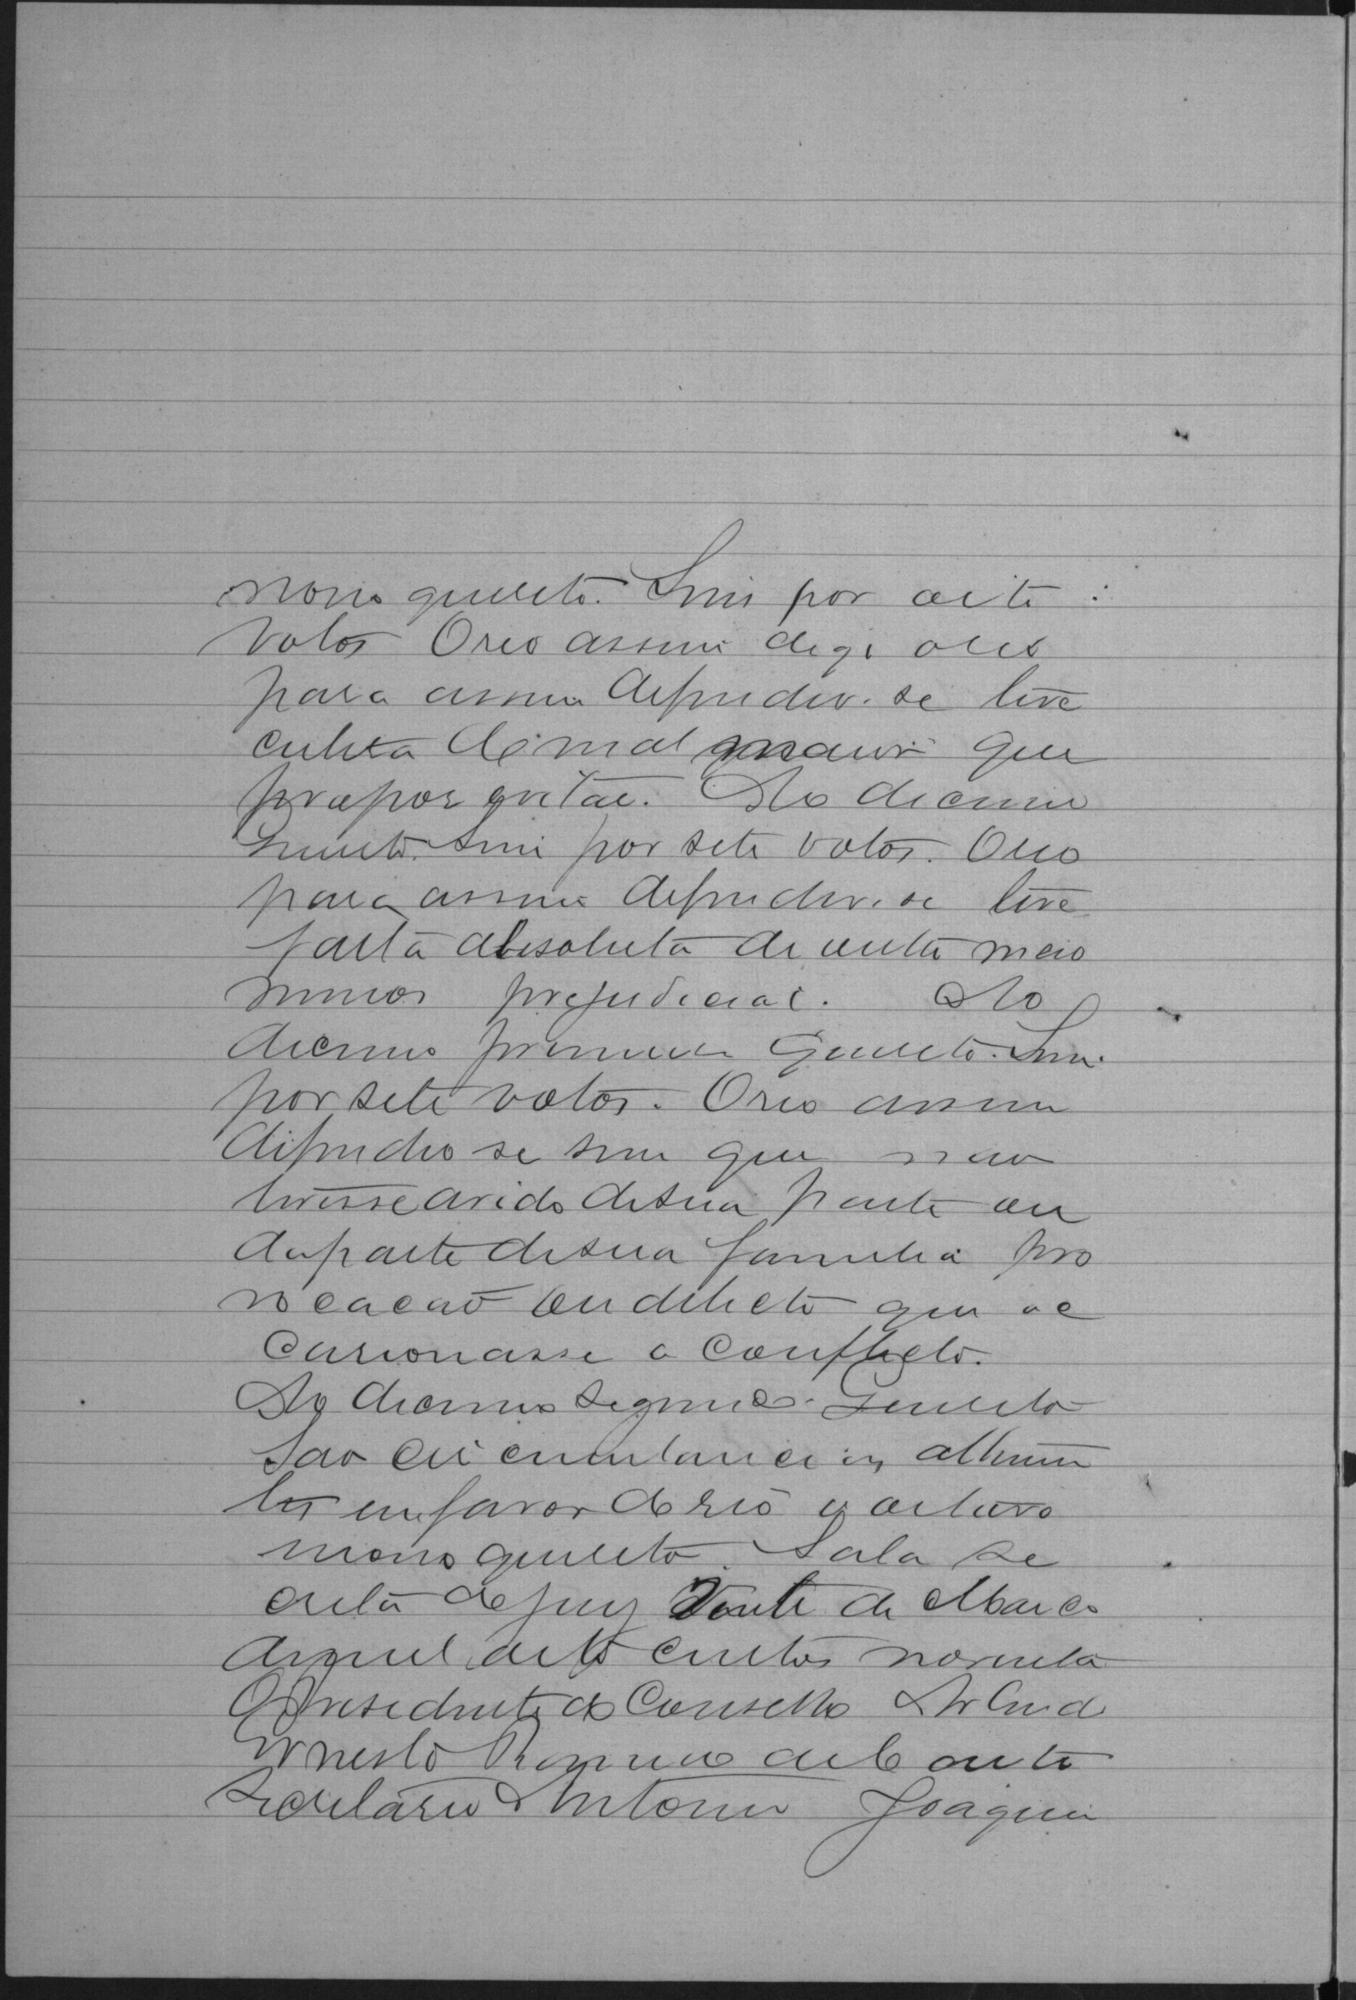 nono quesito. Sim por oito
votos O reo assim digo o reo
para assim defender-se teve
certeza do mal maior que
propos evitar. Ao decimo
quesito. Sim por sete votos. O reo
para assim defender-se teve
falta absoluta de outro meio
menos prejudicial. Ao
decimo primeiro quesito. Sim
por sete votos. O reo assim
defendeo se sem que não
tivesse avido de sua parte ou
da parte de sua familia pro
vocacão ou delicto que oc
casionasse o conflicto.
Ao decimo segundo quesito
São circumstancias attenuan
tes em favor do reo o oitavo
nono quesito. Sala se
creta do jury Vinte de Março
de mil oito centos noventa
O Presidente do Conselho
Ernesto
Secretario Antonio Joaquim